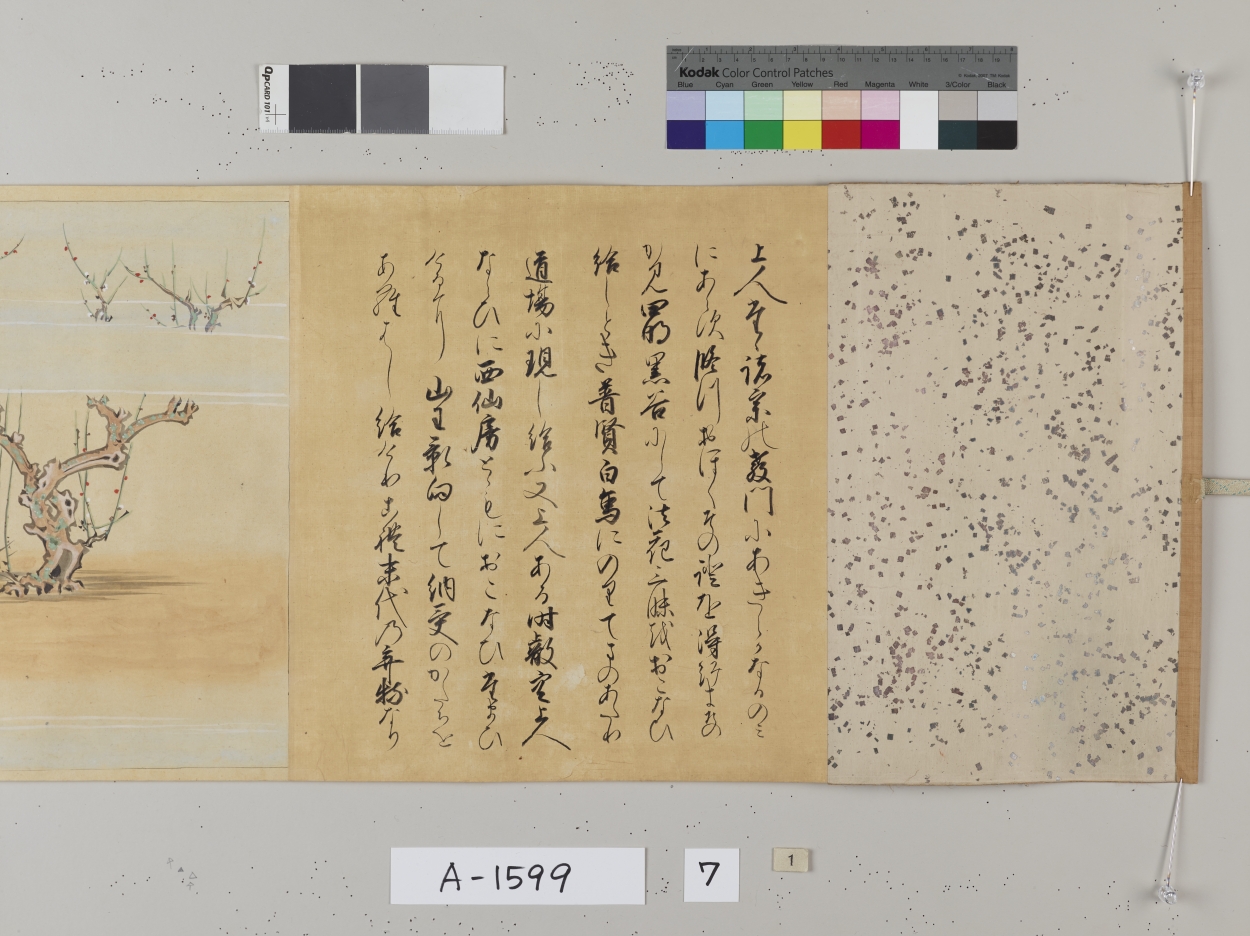 QPCARD 101
Kodak Color Control Patches
Blue Cyan Green Yellow Red Magenta White 3/Color Black
上人たゝ諸宗の教門にあきらかなるのミ
にあらす修行おほくその證を得給その
かみ四明黒谷にして法花三昧をおこなひ
給しとき普賢白象にのりてまのあたり
道場に現し給ふ又上人ある時叡空上人
ならひに西仙房ともにおこなひたまひ
けるに山王影向して納受のかたちを
あらはし給けりこれ末代の奇特なり
A-1599
7
1